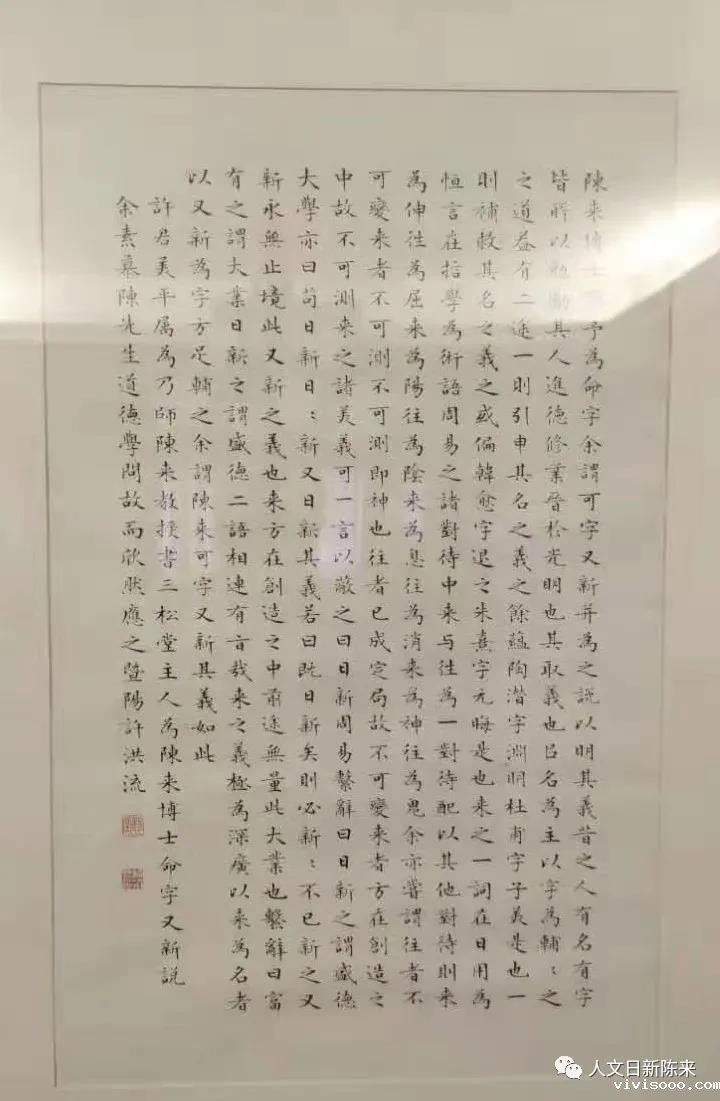 陳来博士予為命字余謂可字又新并為之說以明其義昔之人有名有字
皆所以勉勵其人進德修業晉於光明也其取義也㠯名為主以字為輔〻之
之道益有二途一則引申其名之義之餘蘊陶潛字淵明杜甫字子美是也一
則補救其名之義之或偏韓愈字退之朱熹字元晦是也来之一詞在日用為
恒言在哲學為術語周易之諸對待中来与往為一對待配以其他對待則来
為伸往為屈来為陽往為陰来為息往為消来為神往為鬼余亦嘗謂往者不
可變来者不可測不可測即神也往者已成定局故不可變来者方在創造之
中故不可測来之諸美義可一言以蔽之曰日新周易繫辭曰日新之謂盛德
大學亦曰苟日新日〻新又日新其義若曰既日新矣則必新〻不已新之又
新永無止境此又新之義也来方在創造之中前途無量此大業也繫辭曰富
有之謂大業日新之謂盛德二語相連有旨哉来之義極為深廣以来為名者
以又新為字方足輔之余謂陳来可字又新其義如此
許君美平属為乃師陳来教授書三松堂主人為陳来博士命字又新説
余素慕陳先生道德學問故而欣然應之暨陽許洪流
人文日新陈来
vivisooo.com